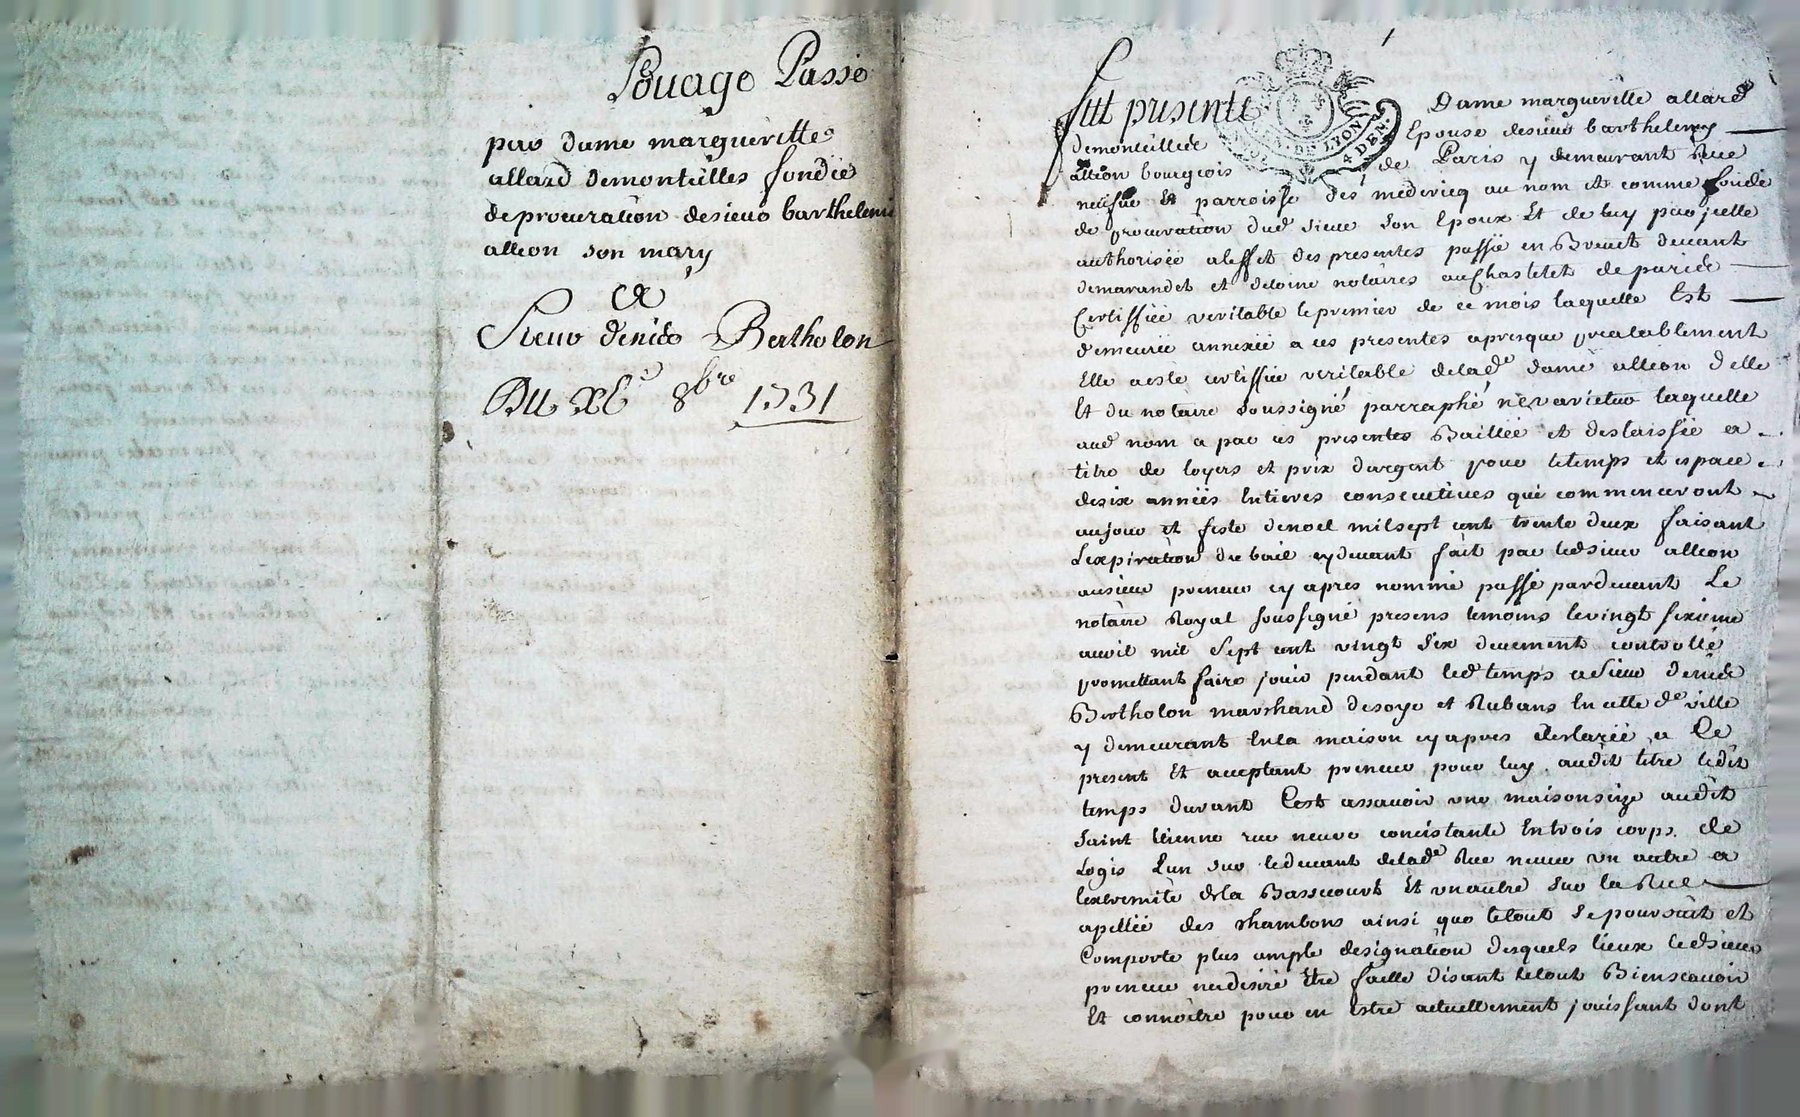 Louage Passé
par dame margueritte
allard demonteilles fondée
de procuration desieur barthelemi
alleon son mary
a
Sieur denis Bertholon
Du XVe 8bre 1731
fut presente Dame margueritte allard
demonteilles Epouse desieur barthelemy
alleon bourgeois de Paris y demeurant Rue
neusve et parroisse des medericq au nom et comme fondé
de procuration dud sieur son Epoux Et de luy par jcelle
authorisée aleffet des presentes passée en Brevet devant
demarandel et deloine notaires auchastelet de paris
Certiffiée veritable lepremier de ce mois laquelle Est
demeurée annexée a ces presentes apresque prealablement
Elle aeste certiffiée veritable delade dame alleon d elle
Et du notaire soussigné parraphé nevarietur laquelle
aud nom a par ces presentes Baillée et deslaissée a
titre de loyers et prix dargent pour letemps et espace
desix années Entieres consecutives qui commenceront
aujour et feste denoel milsept cent trente deux faisant
Lexpiration du bail cydevant fait par ledsieur alleon
ausieur preneur cy apres nommé passé pardevant Le
notaire Royal soussigné presens temoins levingt sixieme
avril mil sept cent vingt six deuement controllé
promettant faire jouir pendant led temps asieur denis
Bertholon marchand desoye et Rubans En cette de ville
y demeurant Enla maison cyapres declarée a Ce
present Et acceptant preneur pour luy audit titre ledit
temps durant Cest assavoir une maisonsize audit
saint Etienne rue neuve concistante Entrois corps de
Logis Lun sur ledevant delade Rue neuve un autre a
lextremité dela Bassecourt Et unautre sur la Rue
apellée des chambons ainsi que letout sepoursuit et
Comporte plus ample designation desquels lieux ledsieur
preneur nadesiré Etre faitte disant letout Bienscavoir
Et connoitre pour en Estre actuellement jouissant dont